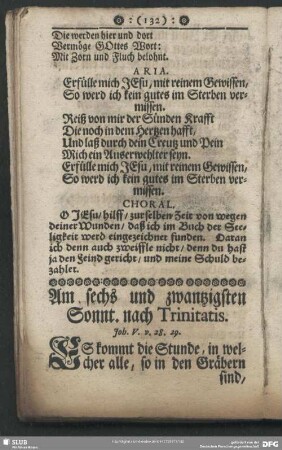 : (132) :
Die werden hier und dort
Vermöge GOttes Wort:
Mit Zorn und Fluch belohnt.
ARIA.
Erfülle mich JEsu, mit reinem Gewissen,
So werd ich kein gutes im Sterben ver-
missen.
Reiß von mir der Sünden Krafft
Die noch in dem Hertzen hafft,
Und laß durch dein Creutz und Pein
Mich ein Auserwehlter seyn.
Erfülle mich JEsu, mit reinem Gewissen,
So werd ich kein gutes im Sterben ver-
missen.
CHORAL.
O JEsu, hilff, zur selben Zeit von wegen
deiner Wunden, daß ich im Buch der See-
ligkeit werd eingezeichnet funden. Daran
ich denn auch zweiffle nicht, denn du hast
ja den Feind gericht, und meine Schuld be-
zahlet.
Am sechs und zwantzigsten
Sonnt. nach Trinitatis.
Joh. V. v. 28. 29.
ES kommt die Stunde, in wel-
cher alle, so in den Gräbern
sind,
SLUB
DFG